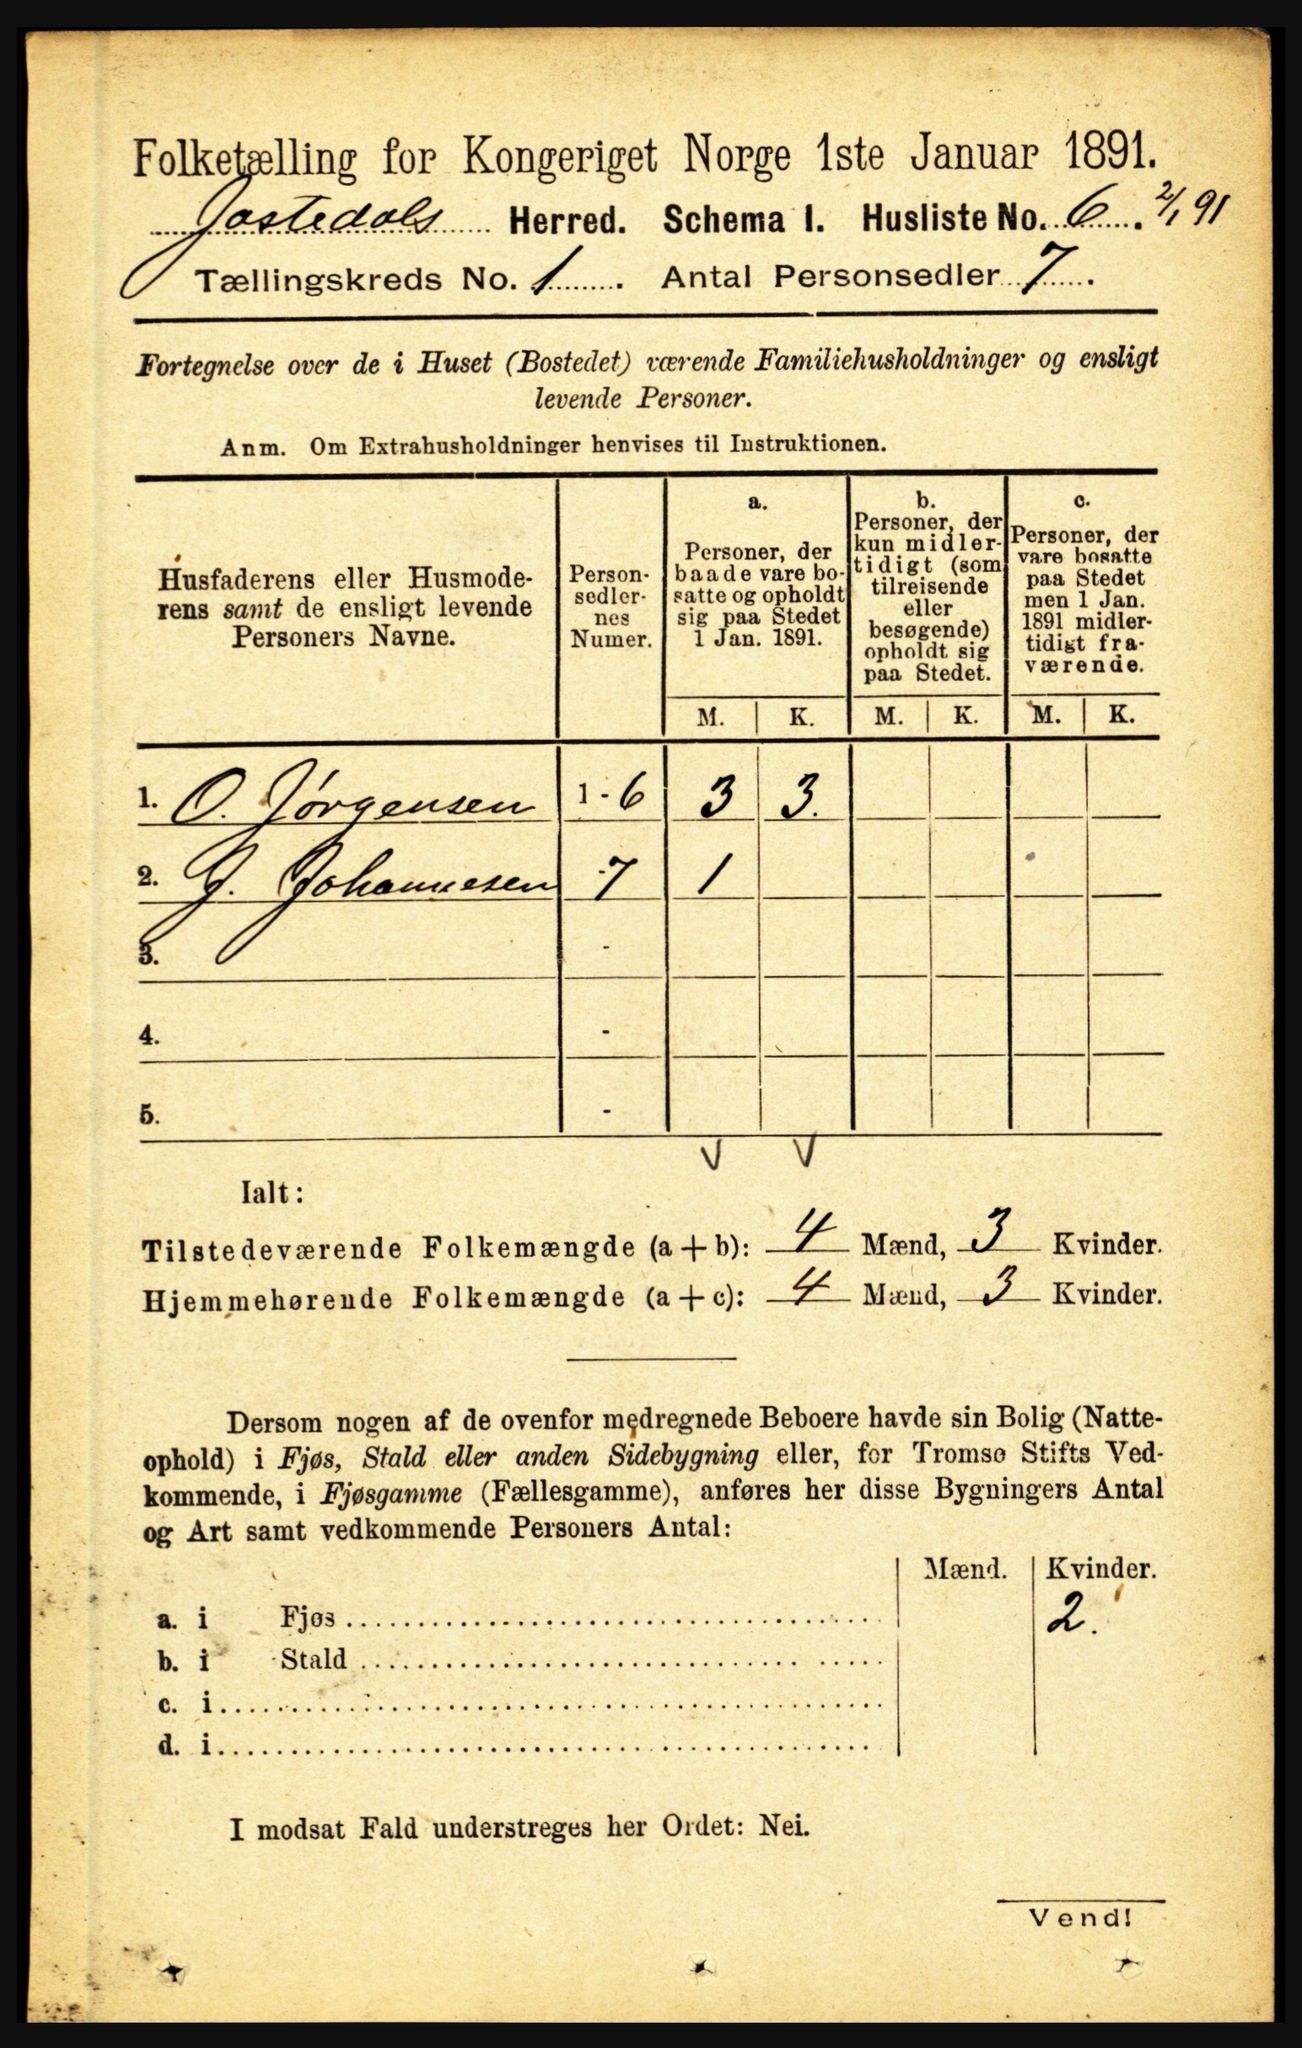 Folketælling for Kongeriget Norge 1ste Januar 1891.
Jostedals Herred. Schema I. Husliste No. 6. 2/1 91
Tællingskreds No. 1. Antal Personsedler 7.
Fortegnelse over de i Huset (Bostedet) værende Familiehusholdninger og ensligt
levende Personer.
Anm. Om Extrahusholdninger henvises til Instruktionen.
Husfaderens eller Husmode-
rens samt de ensligt levende
Personers Navne.
Person-
sedler-
nes
Numer.
a.
Personer, der
baade vare bo-
satte og opholdt
sig paa Stedet
1 Jan. 1891.
b.
Personer, der
kun midler-
tidigt (som
tilreisende
eller
besøgende)
opholdt sig
paa Stedet.
c.
Personer, der
vare bosatte
paa Stedet
men 1 Jan.
1891 midler-
tidigt fra-
værende.
M. K. M. K. M. K.
1. O. Jørgensen 1-6 3 3.
2. J. Johannesen -7 1
3. -
4. -
5. -
V V
Ialt:
Tilstedeværende Folkemængde (a + b): 4 Mænd, 3 Kvinder.
Hjemmehørende Folkemængde (a + c): 4 Mænd, 3 Kvinder.
Dersom nogen af de ovenfor medregnede Beboere havde sin Bolig (Natte-
ophold) i Fjøs, Stald eller anden Sidebygning eller, for Tromsø Stifts Ved-
kommende, i Fjøsgamme (Fællesgamme), anføres her disse Bygningers Antal
og Art samt vedkommende Personers Antal:
Mænd. Kvinder.
a. i Fjøs 2.
b. i Stald
c. i
d. i
I modsat Fald understreges her Ordet: Nei.
Vend!